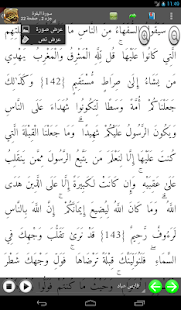 11:49
سورة البقرة
جزء 2 , صفحة 22
عرض صورة
عرض نص
سَيَقُولُ السُّفَهَاءُ مِنَ النَّاسِ
قُلْ لِلَّهِ الْمَشْرِقُ وَالْمَغْرِبُ يَهْدِي
مَن يَشَاءُ إِلَىٰ صِرَاطٍ مُسْتَقِيمٍ {142} وَكَذَٰلِكَ
جَعَلْنَاكُمْ أُمَّةً وَسَطًا لِتَكُونُوا شُهَدَاءَ عَلَى النَّاسِ
وَيَكُونَ الرَّسُولُ عَلَيْكُمْ شَهِيدًا وَمَا جَعَلْنَا الْقِبْلَةَ الَّتِي
كُنتَ عَلَيْهَا إِلَّا لِنَعْلَمَ مَن يَتَّبِعُ الرَّسُولَ مِمَّن يَنقَلِبُ
عَلَىٰ عَقِبَيْهِ وَإِن كَانَتْ لَكَبِيرَةً إِلَّا عَلَى الَّذِينَ هَدَى
اللَّهُ وَمَا كَانَ اللَّهُ لِيُضِيعَ إِيمَانَكُمْ إِنَّ اللَّهَ بِالنَّاسِ
لَرَءُوفٌ رَحِيمٌ {143} قَدْ نَرَىٰ تَقَلُّبَ وَجْهِكَ فِي
السَّمَاءِ فَلَنُوَلِّيَنَّكَ قِبْلَةً تَرْضَاهَا فَوَلِّ وَجْهَكَ شَطْرَ
وَحَيْثُ مَا كُنتُمْ فَوَلُّوا
فارس عباد